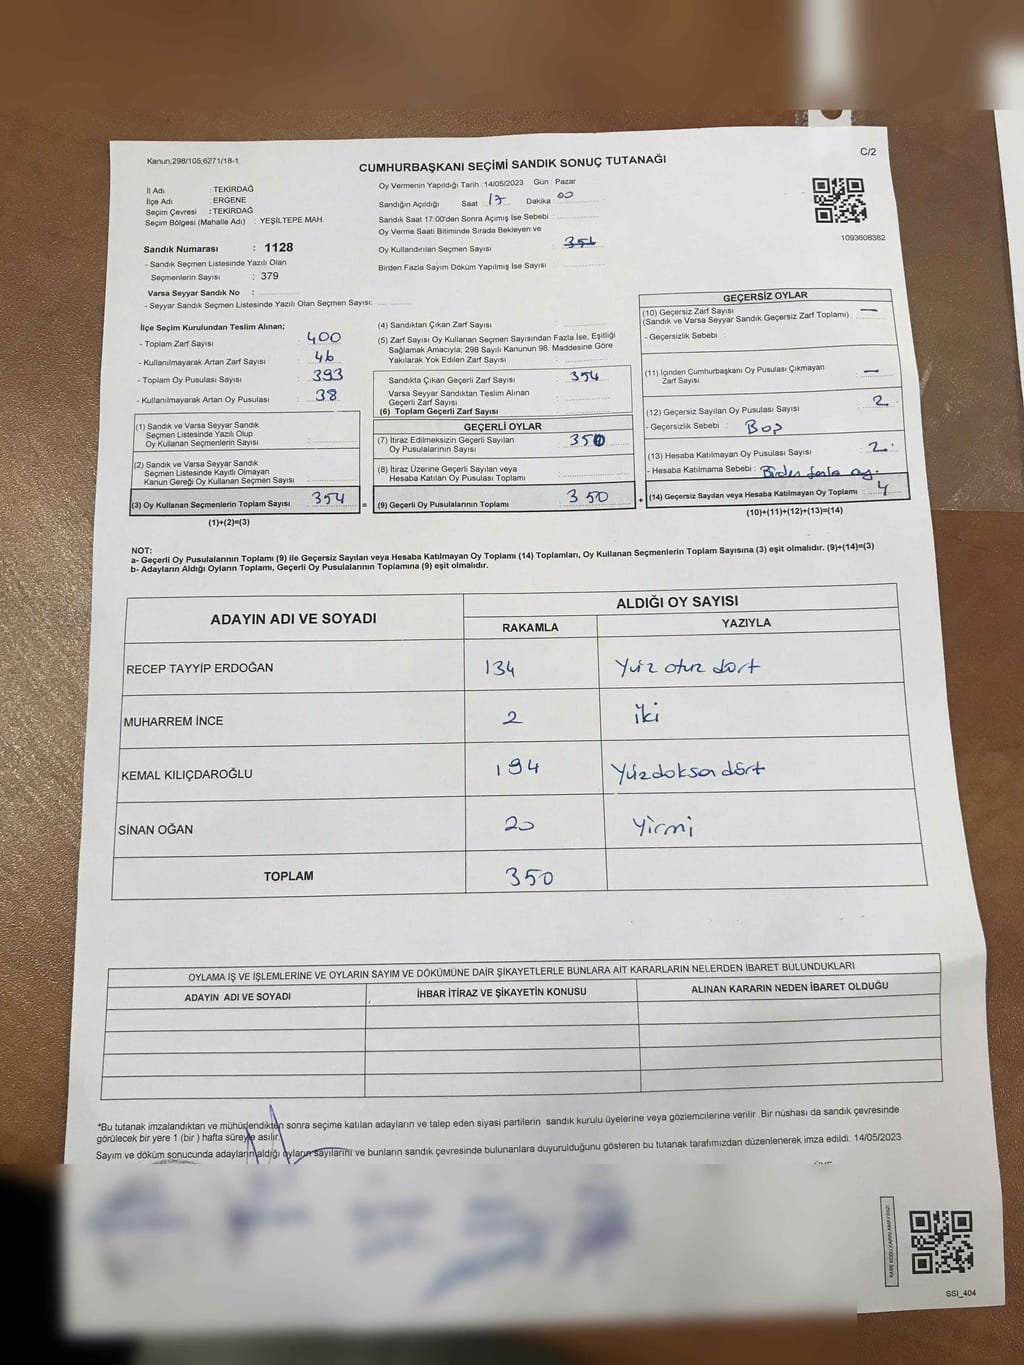 Kanun:298/105;6271/18-1
CUMHURBAŞKANI SEÇİMİ SANDIK SONUÇ TUTANAĞI
C/2
İl Adı : TEKİRDAĞ
İlçe Adı : ERGENE
Seçim Çevresi : TEKİRDAĞ
Seçim Bölgesi (Mahalle Adı) : YEŞİLTEPE MAH.
Sandık Numarası : 1128
- Sandık Seçmen Listesinde Yazılı Olan
Seçmenlerin Sayısı : 379
Varsa Seyyar Sandık No :
- Seyyar Sandık Seçmen Listesinde Yazılı Olan Seçmen Sayısı:
Oy Vermenin Yapıldığı Tarih : 14/05/2023 Gün : Pazar
Sandığın Açıldığı Saat 17 Dakika 00
Sandık Saat 17:00'den Sonra Açımış İse Sebebi :
Oy Verme Saati Bitiminde Sırada Bekleyen ve
Oy Kullandırılan Seçmen Sayısı :
Birden Fazla Sayım Döküm Yapılmış İse Sayısı :
1093608382
İlçe Seçim Kurulundan Teslim Alınan;
- Toplam Zarf Sayısı : 400
- Kullanılmayarak Artan Zarf Sayısı : 46
- Toplam Oy Pusulası Sayısı : 393
- Kullanılmayarak Artan Oy Pusulası : 38
(1) Sandık ve Varsa Seyyar Sandık
Seçmen Listesinde Yazılı Olup
Oy Kullanan Seçmenlerin Sayısı :
(2) Sandık ve Varsa Seyyar Sandık
Seçmen Listesinde Kayıtlı Olmayan
Kanun Gereği Oy Kullanan Seçmen Sayısı :
(3) Oy Kullanan Seçmenlerin Toplam Sayısı : 354
(1)+(2)=(3)
=
(4) Sandıktan Çıkan Zarf Sayısı :
(5) Zarf Sayısı Oy Kullanan Seçmen Sayısından Fazla İse, Eşitliği
Sağlamak Amacıyla; 298 Sayılı Kanunun 98. Maddesine Göre
Yakılarak Yok Edilen Zarf Sayısı :
Sandıkta Çıkan Geçerli Zarf Sayısı : 354
Varsa Seyyar Sandıktan Teslim Alınan
Geçerli Zarf Sayısı :
(6) Toplam Geçerli Zarf Sayısı :
GEÇERLİ OYLAR
(7) İtiraz Edilmeksizin Geçerli Sayılan
Oy Pusulalarının Sayısı : 350
(8) İtiraz Üzerine Geçerli Sayılan veya
Hesaba Katılan Oy Pusulası Toplamı :
(9) Geçerli Oy Pusulalarının Toplamı : 350
+
GEÇERSİZ OYLAR
(10) Geçersiz Zarf Sayısı
(Sandık ve Varsa Seyyar Sandık Geçersiz Zarf Toplamı) : —
- Geçersizlik Sebebi :
(11) İçinden Cumhurbaşkanı Oy Pusulası Çıkmayan
Zarf Sayısı : —
(12) Geçersiz Sayılan Oy Pusulası Sayısı : 2
- Geçersizlik Sebebi : Boş
(13) Hesaba Katılmayan Oy Pusulası Sayısı : 2
- Hesaba Katılmama Sebebi : Birden fazla oy.
(14) Geçersiz Sayılan veya Hesaba Katılmayan Oy Toplamı : 4
(10)+(11)+(12)+(13)=(14)
NOT:
a- Geçerli Oy Pusulalarının Toplamı (9) ile Geçersiz Sayılan veya Hesaba Katılmayan Oy Toplamı (14) Toplamları, Oy Kullanan Seçmenlerin Toplam Sayısına (3) eşit olmalıdır. (9)+(14)=(3)
b- Adayların Aldığı Oyların Toplamı, Geçerli Oy Pusulalarının Toplamına (9) eşit olmalıdır.
ADAYIN ADI VE SOYADI ALDIĞI OY SAYISI
RAKAMLA YAZIYLA
RECEP TAYYİP ERDOĞAN 134 Yüz otuz dört
MUHARREM İNCE 2 iki
KEMAL KILIÇDAROĞLU 194 Yüzdoksandört
SİNAN OĞAN 20 Yirmi
TOPLAM 350
OYLAMA İŞ VE İŞLEMLERİNE VE OYLARIN SAYIM VE DÖKÜMÜNE DAİR ŞİKAYETLERLE BUNLARA AİT KARARLARIN NELERDEN İBARET BULUNDUKLARI
ADAYIN ADI VE SOYADI İHBAR İTİRAZ VE ŞİKAYETİN KONUSU ALINAN KARARIN NEDEN İBARET OLDUĞU
*Bu tutanak imzalandıktan ve mühürlendikten sonra seçime katılan adayların ve talep eden siyasi partilerin sandık kurulu üyelerine veya gözlemcilerine verilir .Bir nüshası da sandık çevresinde
görülecek bir yere 1 (bir ) hafta süreyle asılır.
Sayım ve döküm sonucunda adayların aldığı oyların sayılarını ve bunların sandık çevresinde bulunanlara duyurulduğunu gösteren bu tutanak tarafımızdan düzenlenerek imza edildi. 14/05/2023
SSI_404